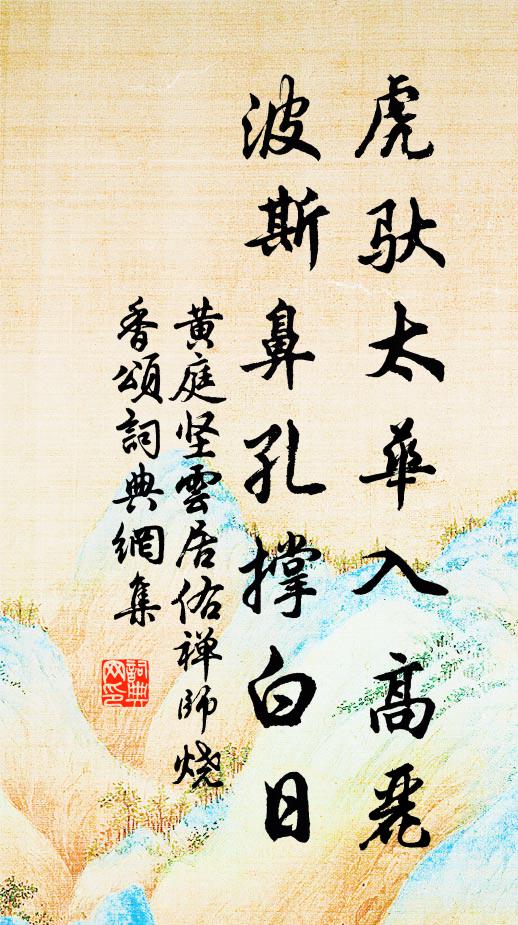 虎馱太華入高麗
波斯鼻孔撑白日
黄庭坚雲居佑禅師烧
香頌詞典網集
詞典
网印